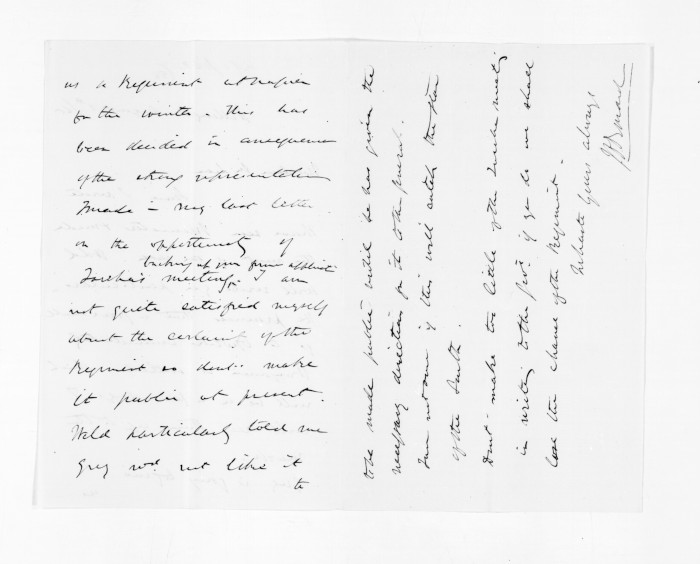 us a Regiment at Napier
for the winter. This has
been decided in consequence
of the strong representation
I made in my last letter
on the opportunity of
taking up your
Tareha's meeting. I am
not quite satisfied myself
about the certainty of the
Regiment so don't make
it public at present.
Weld particularly told me
Grey wd. not like it
to
to be made public until he has given the
necessary directions for it to the General.
I am not sure if this will catch the Star
of the South.
Don't make too little of the Tareha meeting
in writing to the Govt. if you do we shall
lose the chance of the Regiment.
In haste Yours always